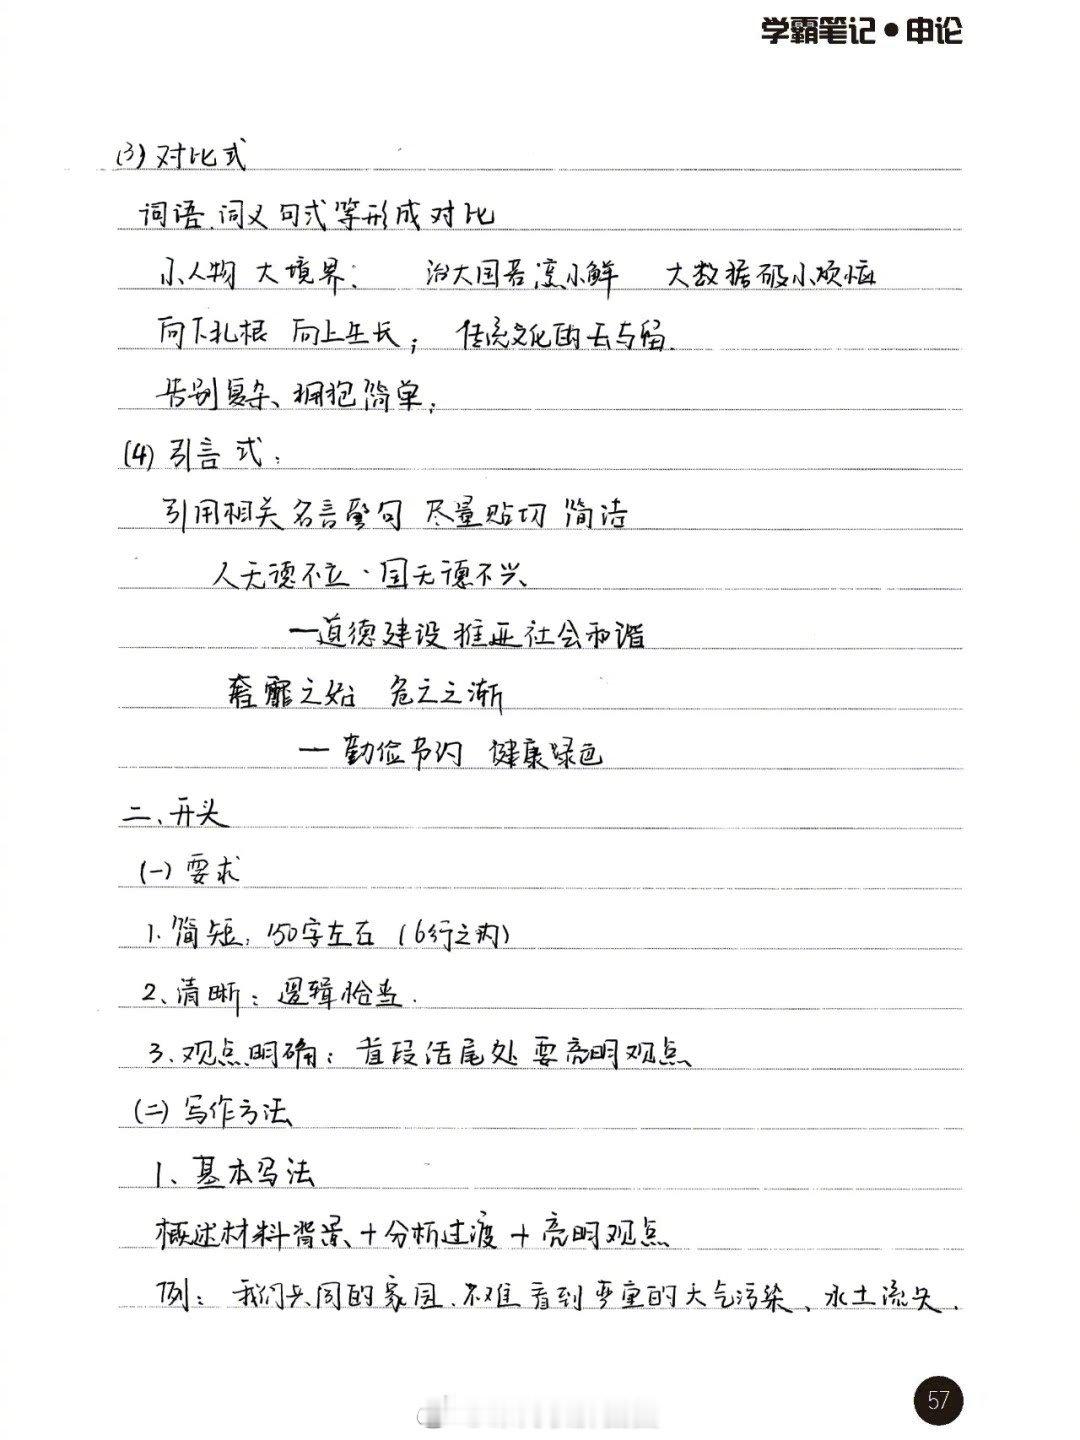 学霸笔记●申论
(3) 对比式
词语、词义句式等形成对比
小人物 大境界; 治大国若烹小鲜 大数据破小烦恼
向下扎根 向上生长; 传统文化的去与留.
告别复杂、拥抱简单;
(4) 引言式:
引用相关名言警句 尽量贴切 简洁
人无德不立·国无德不兴、
—道德建设推进社会和谐
奢靡之始 危亡之渐
—勤俭节约 健康绿色
二、开头
(一) 要求
1. 简短: 150字左右 (6行之内)
2、清晰: 逻辑恰当.
3. 观点明确: 首段结尾处要亮明观点
(二) 写作方法
1、基本写法
概述材料背景+分析过渡+亮明观点
例: 我们共同的家园、不难看到严重的大气污染、水土流失、
57